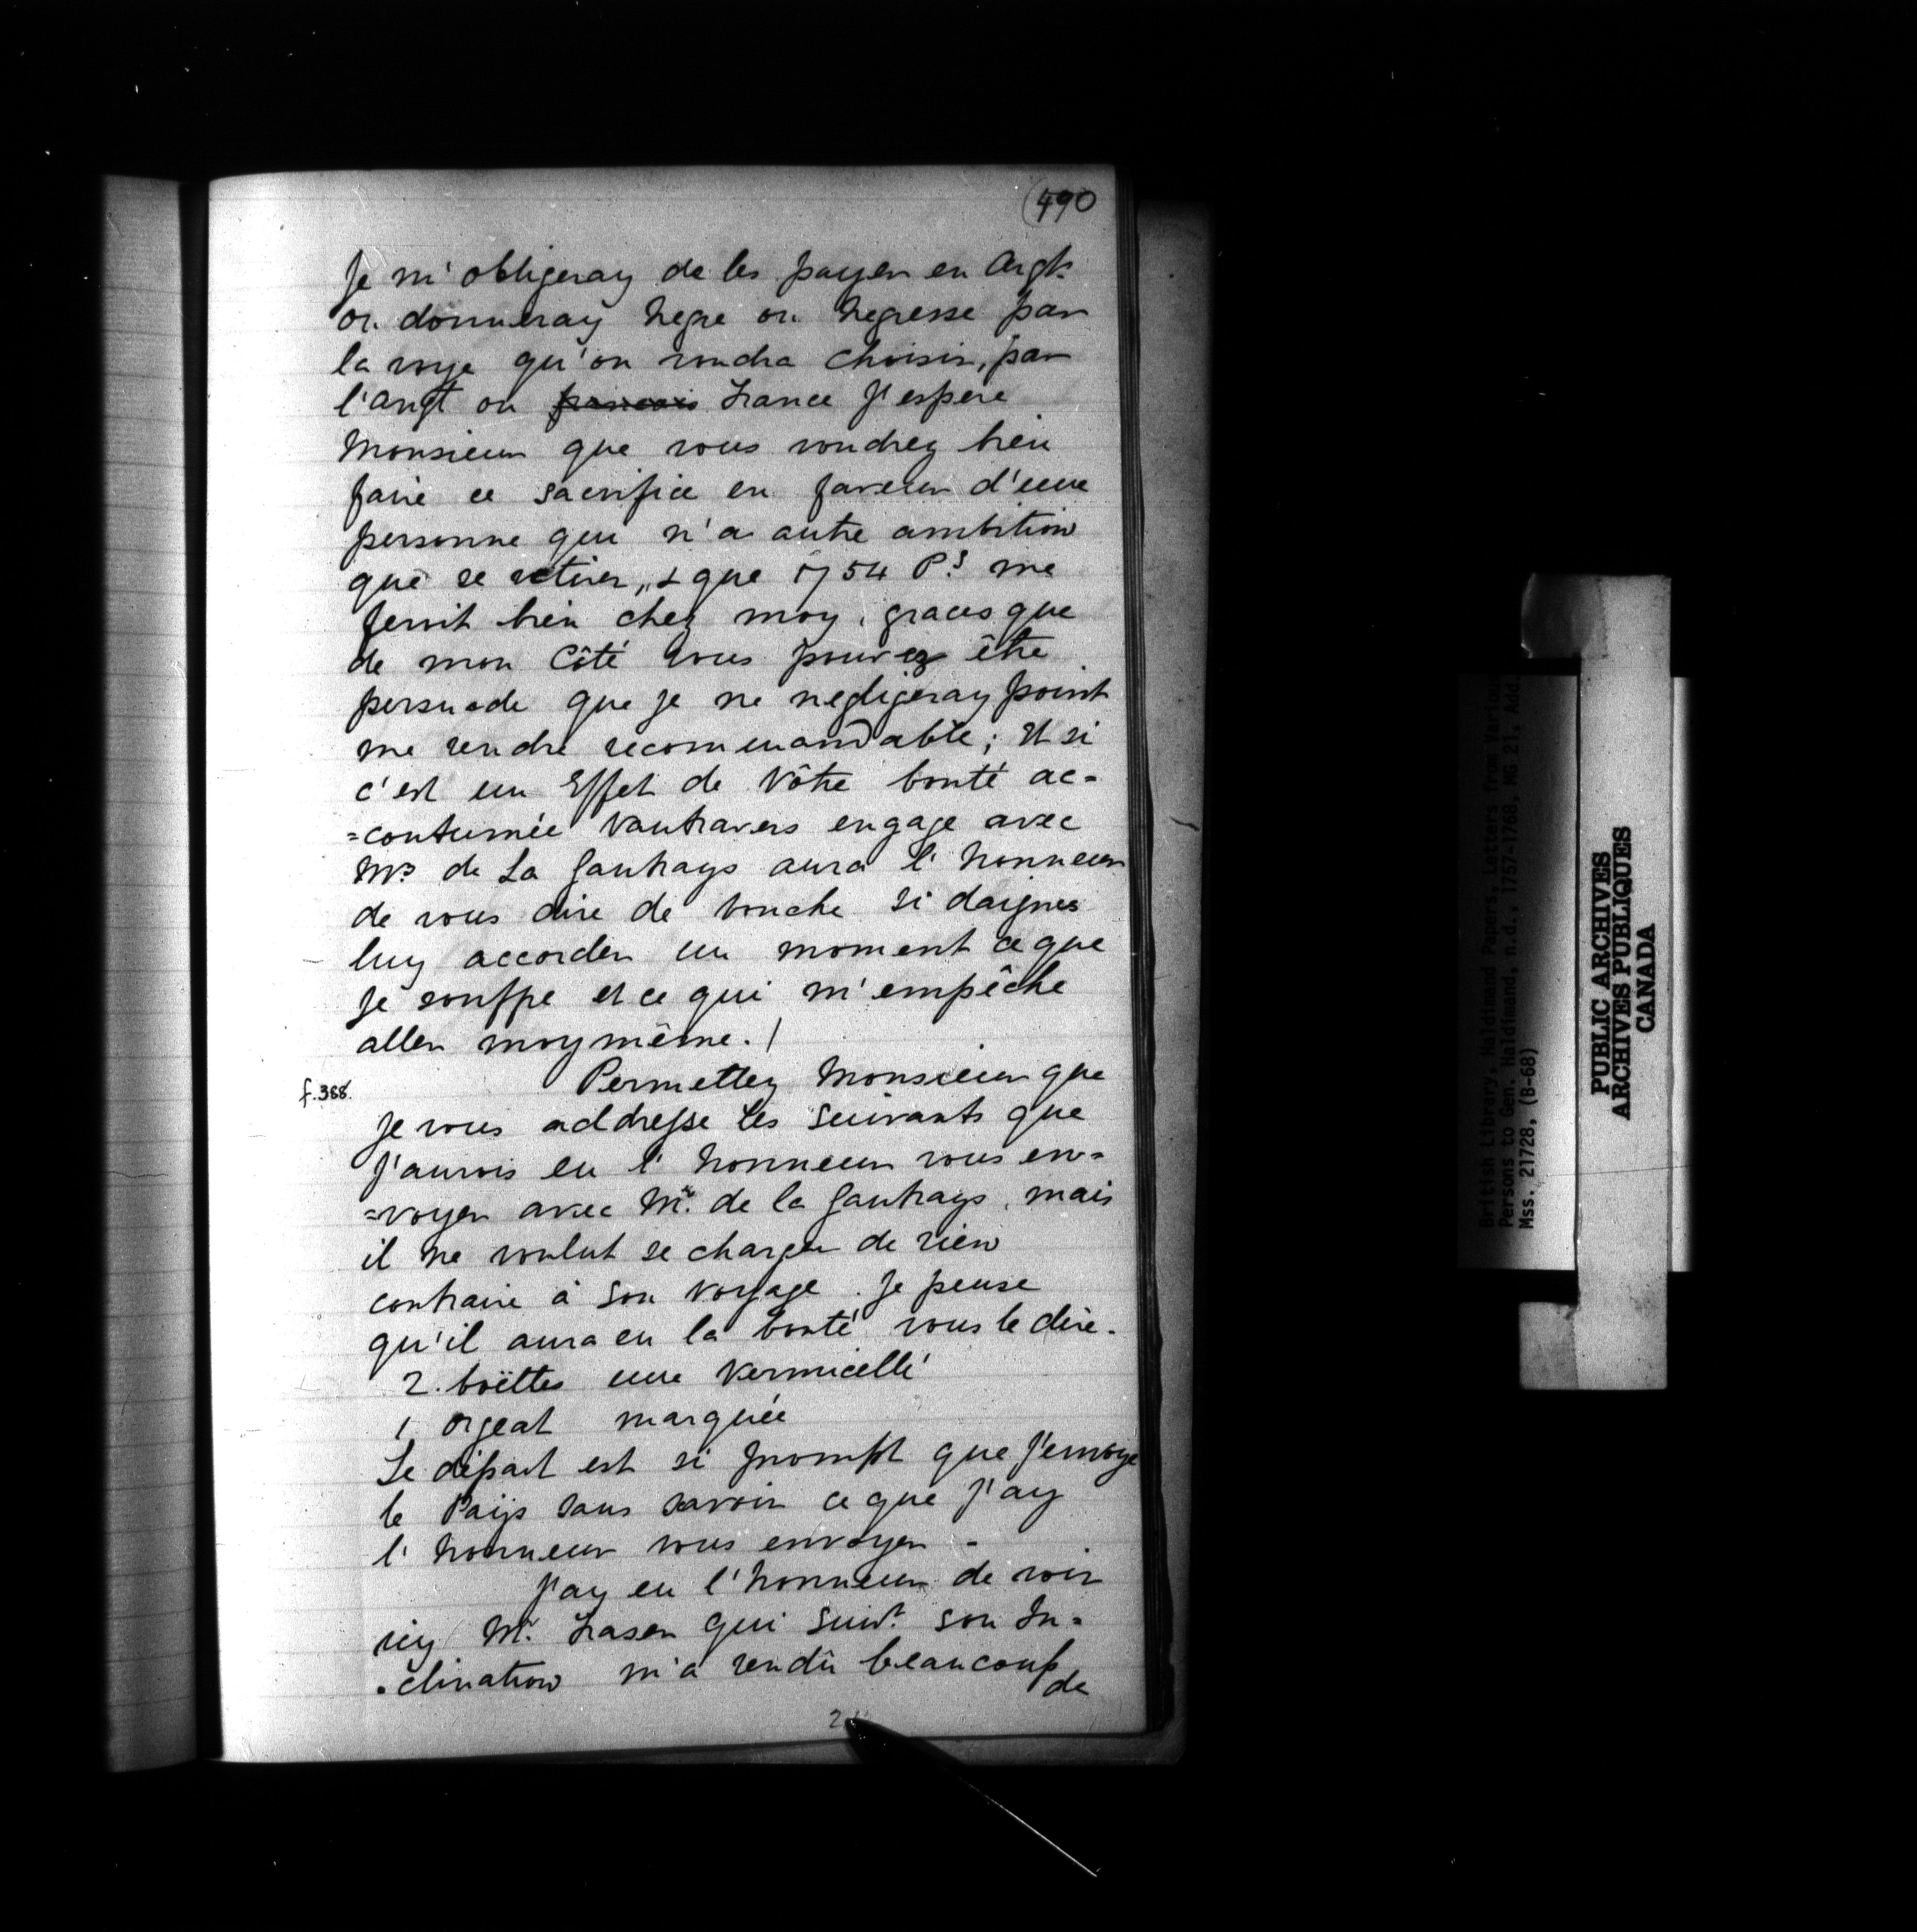 (490
Je m'obligeray de les payer en Argt.
ou donneray Negre ou Negresse par
la voye qu'on voudra choisir, par
l'Angt ou francois France J'espere
Monsieur que vous voudrez bien
faire ce sacrifice en faveur d'une
personne qui n'a autre ambition
que se retirer,, & que 1754 Ps. me
feroit bien chez moy, graces que
de mon Côté Vous pouvez être
persuade que je ne negligeray point
me rendre recommandable; Et si
c'est un Effet de Vôtre bonté ac=
=coutumée Vautravers engage avec
Mr. de La Gautrays aura l'honneur
de vous dire de bouche si daignes
luy accorder un moment ce que
Je souffre et ce qui m'empêche
aller moy même. /
f. 388.
Permettez Monsieur que
Je vous addresse Les Suivants que
J'aurois eu l'honneur vous en=
=voyer avec Mr. de la Gautrays, mais
il ne voulut se charger de rien
contraire à Son Voyage. Je pense
qu'il aura eu la bonté vous le dire.
2. boëttes une Vermicelli
1 orgeat marquée
Le départ est si prompt que J'envoye
le Païs sans savoir ce que J'ay
l'honneur vous envoyer -
J'ay eu l'honneur de voir
icy Mr. Fraser qui Suivt. son In=
=clination m'a rendû beaucoup
de
British Library, Haldimand Papers, Letters from Variou
Persons to Gen. Haldimand, n.d., 1757-1768, MG 21, Add.
Mss. 21728, (B-68)
PUBLIC ARCHIVES
ARCHIVES PUBLIQUES
CANADA